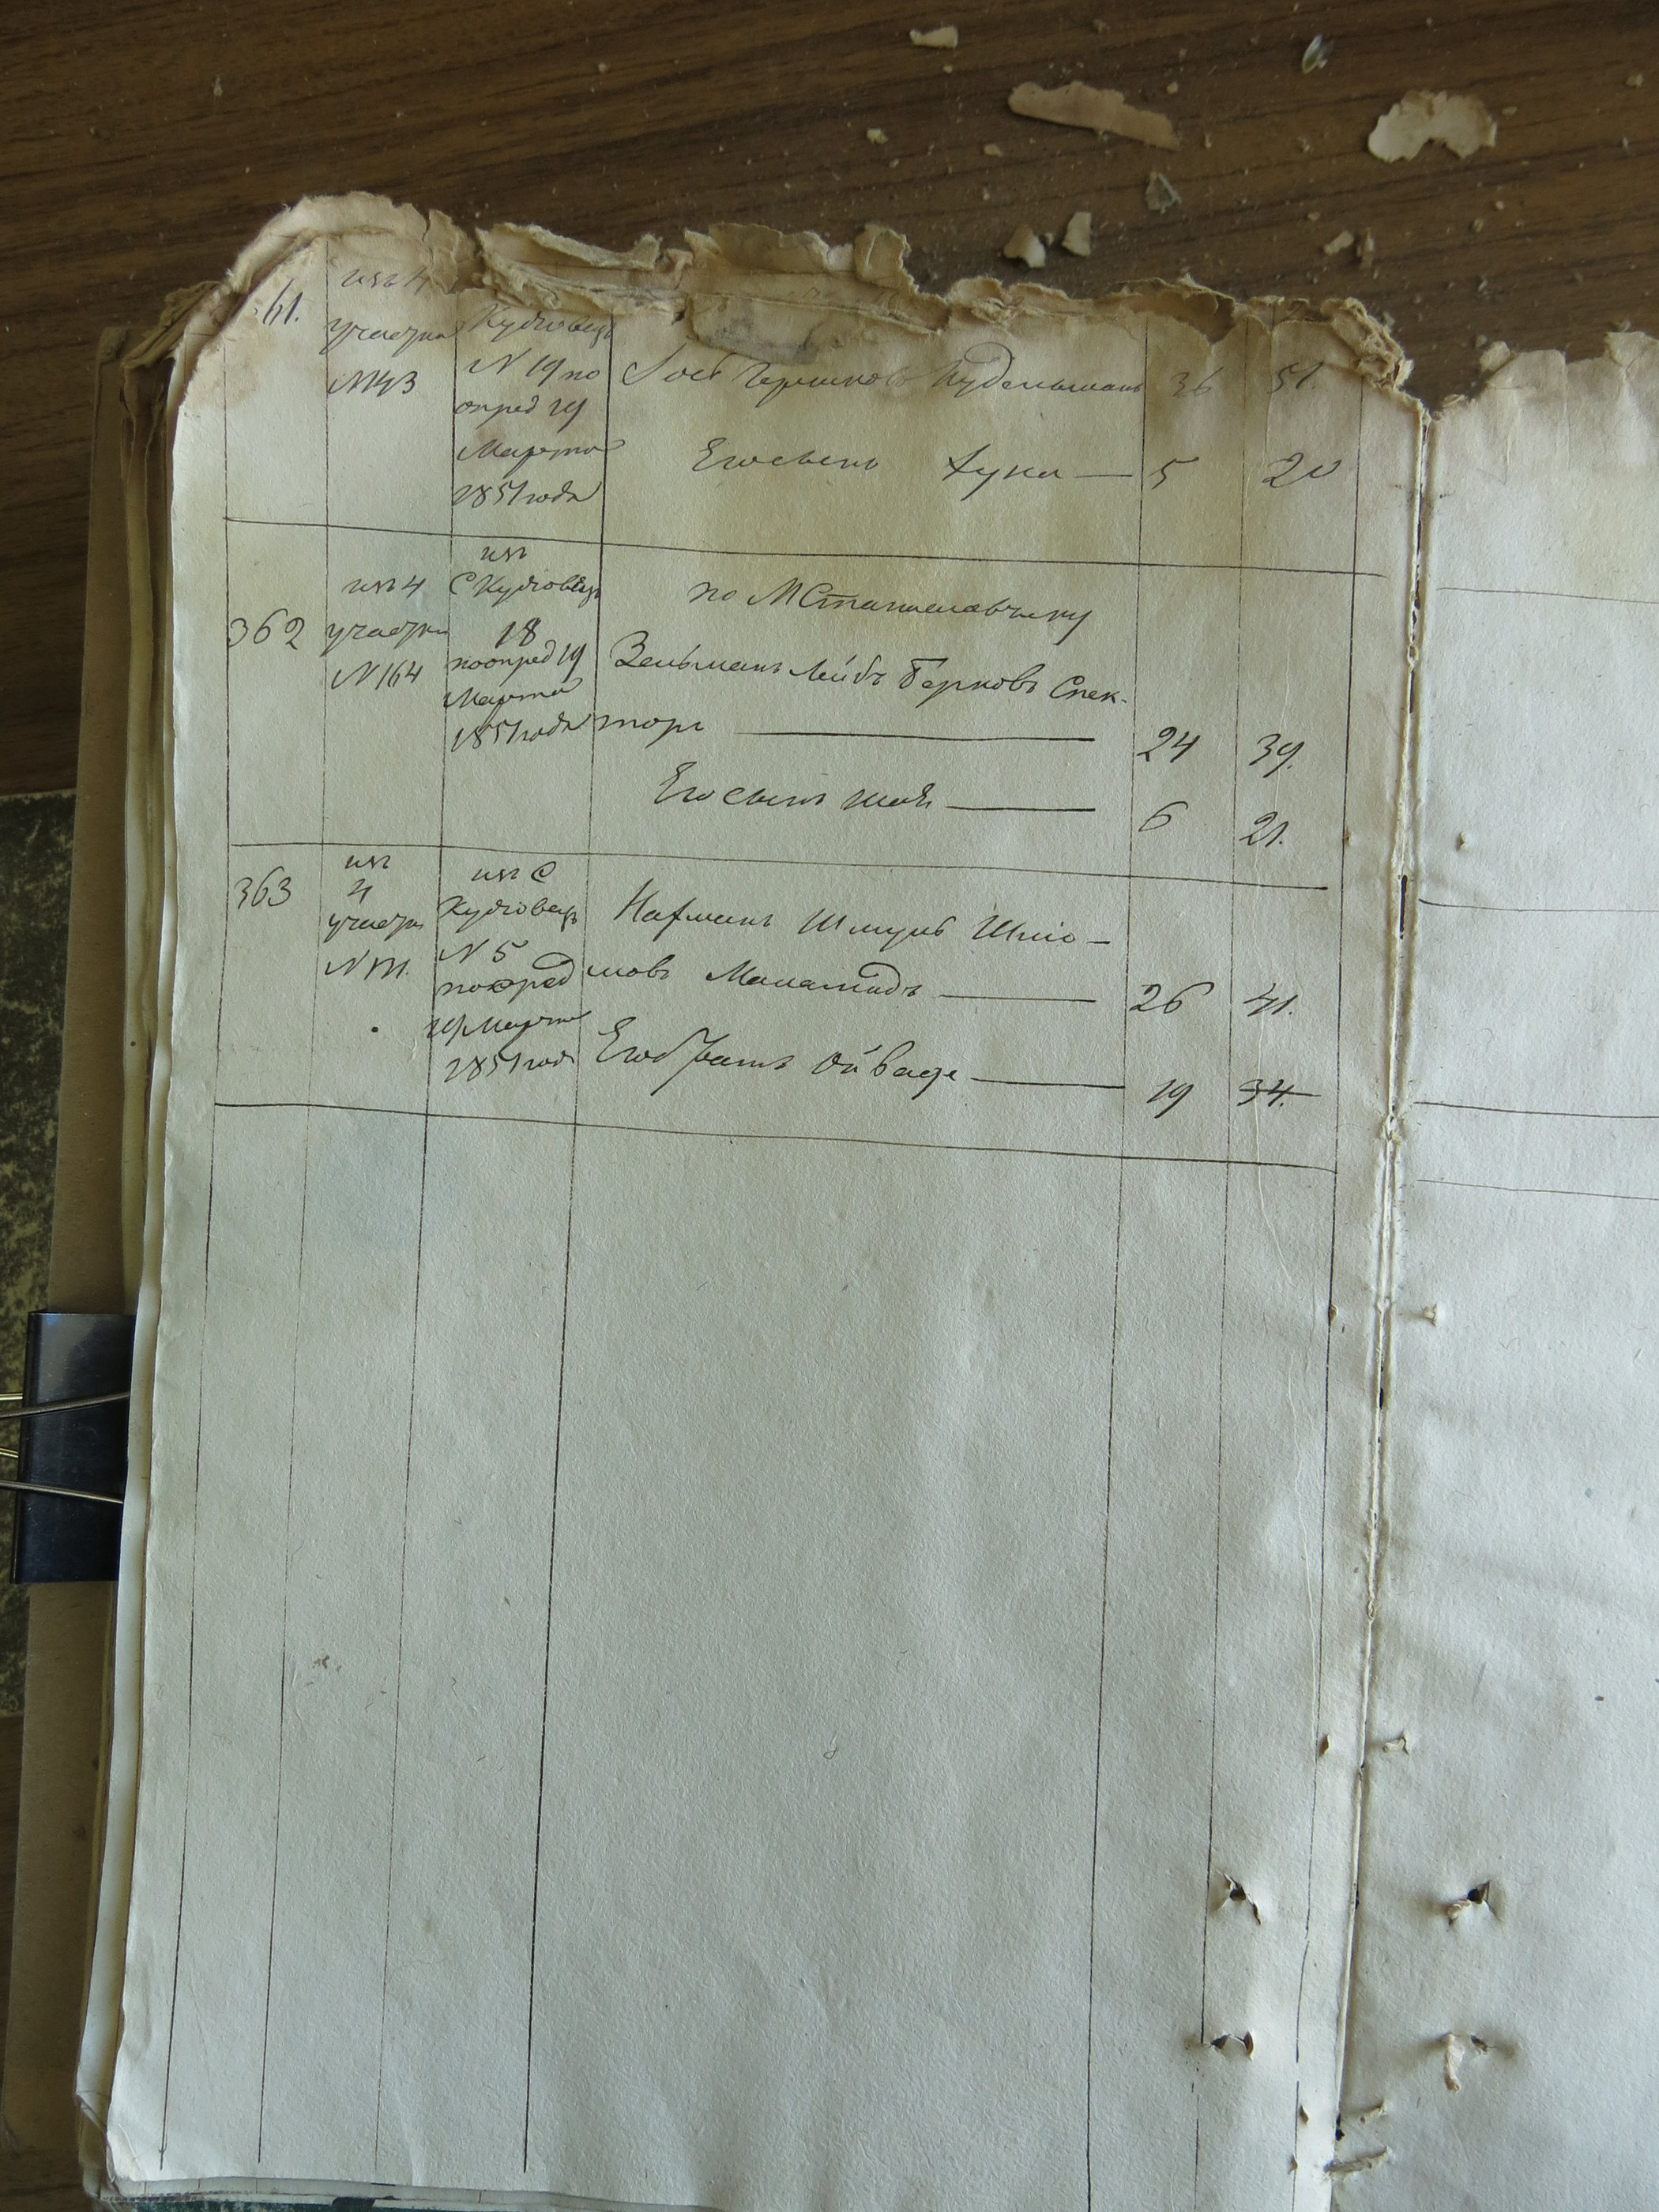 61.
изъ 4
участка
N 43
Кудовецъ
N 19 по
опред 19
Марта
1851 года
Іось Гершковъ 36 51.
Его сынъ Дука — 5 20
362
изъ 4
участка
N 164
изъ
С Кудовецъ
18
по опред 19
Марта
1851 года
по М Станиславчику
Зельманъ Лейбъ Берковъ Спек-
торъ — 24 39.
Его сынъ Шая — 6 21.
363
изъ
4
участка
изъ С
Кудовецъ
N 5
по опред
19 Марта
1851 года
Нахманъ Шмуль Шло-
мовъ Маламудъ — 26 41.
Его братъ — 19 34.